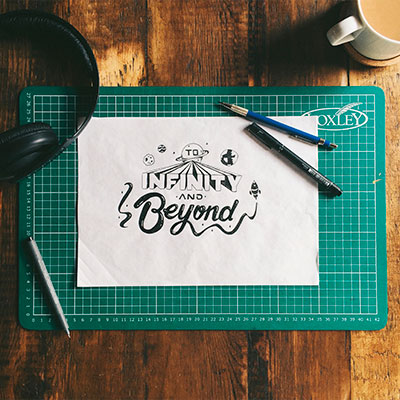 LOXLEY
TO
INFINITY
AND
Beyond
0 1 2 3 4 5 6 7 8 9 10 11 12 13 14 15 16 17 18 19 20 21 22 23 24 25 26 27 28 29 30 31 32 33 34 35 36 37 38 39 40 41 42